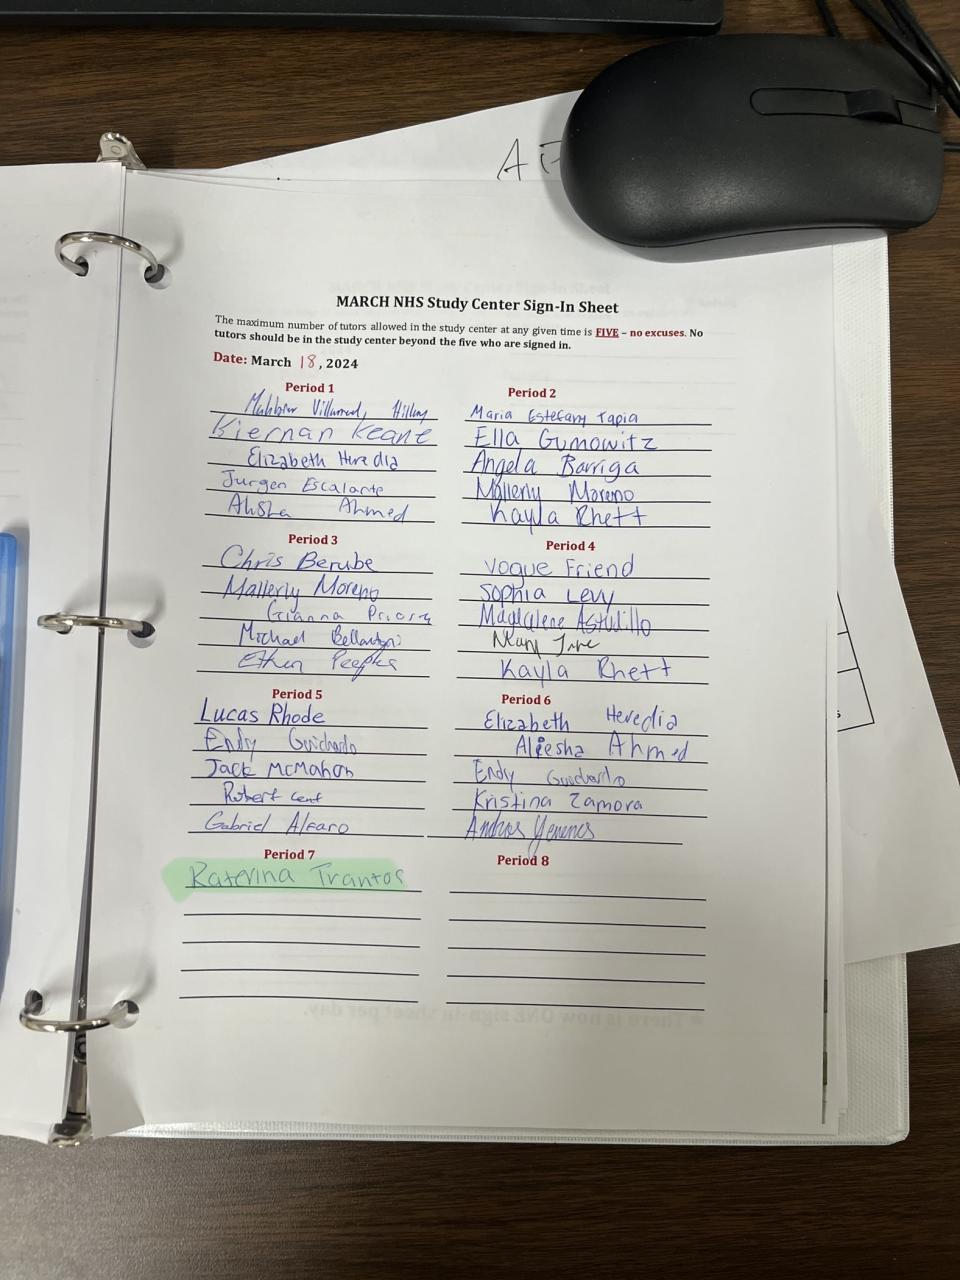 MARCH NHS Study Center Sign-In Sheet
The maximum number of tutors allowed in the study center at any given time is FIVE – no excuses. No
tutors should be in the study center beyond the five who are signed in.
Date: March 18, 2024
Period 1
Kiernan Keane
Elizabeth Heredia
Jurgen Escalante
Ahmed
Period 2
Maria Estefany Tapia
Ella Gumowitz
Angela Barriga
Mallerly Moreno
Kayla Rhett
Period 3
Chris Berube
Mallerly Moreno
Gianna Priore
Michael
Ethan Peeples
Period 4
Vogue Friend
Sophia Levy
Magdalene Astudillo
Kayla Rhett
Period 5
Lucas Rhode
Endy Guichardo
Jack McMahon
Robert
Gabriel Alfaro
Period 6
Elizabeth Heredia
Aleesha Ahmed
Endy Guichardo
Kristina Zamora
Period 7
Katerina Trantos
Period 8